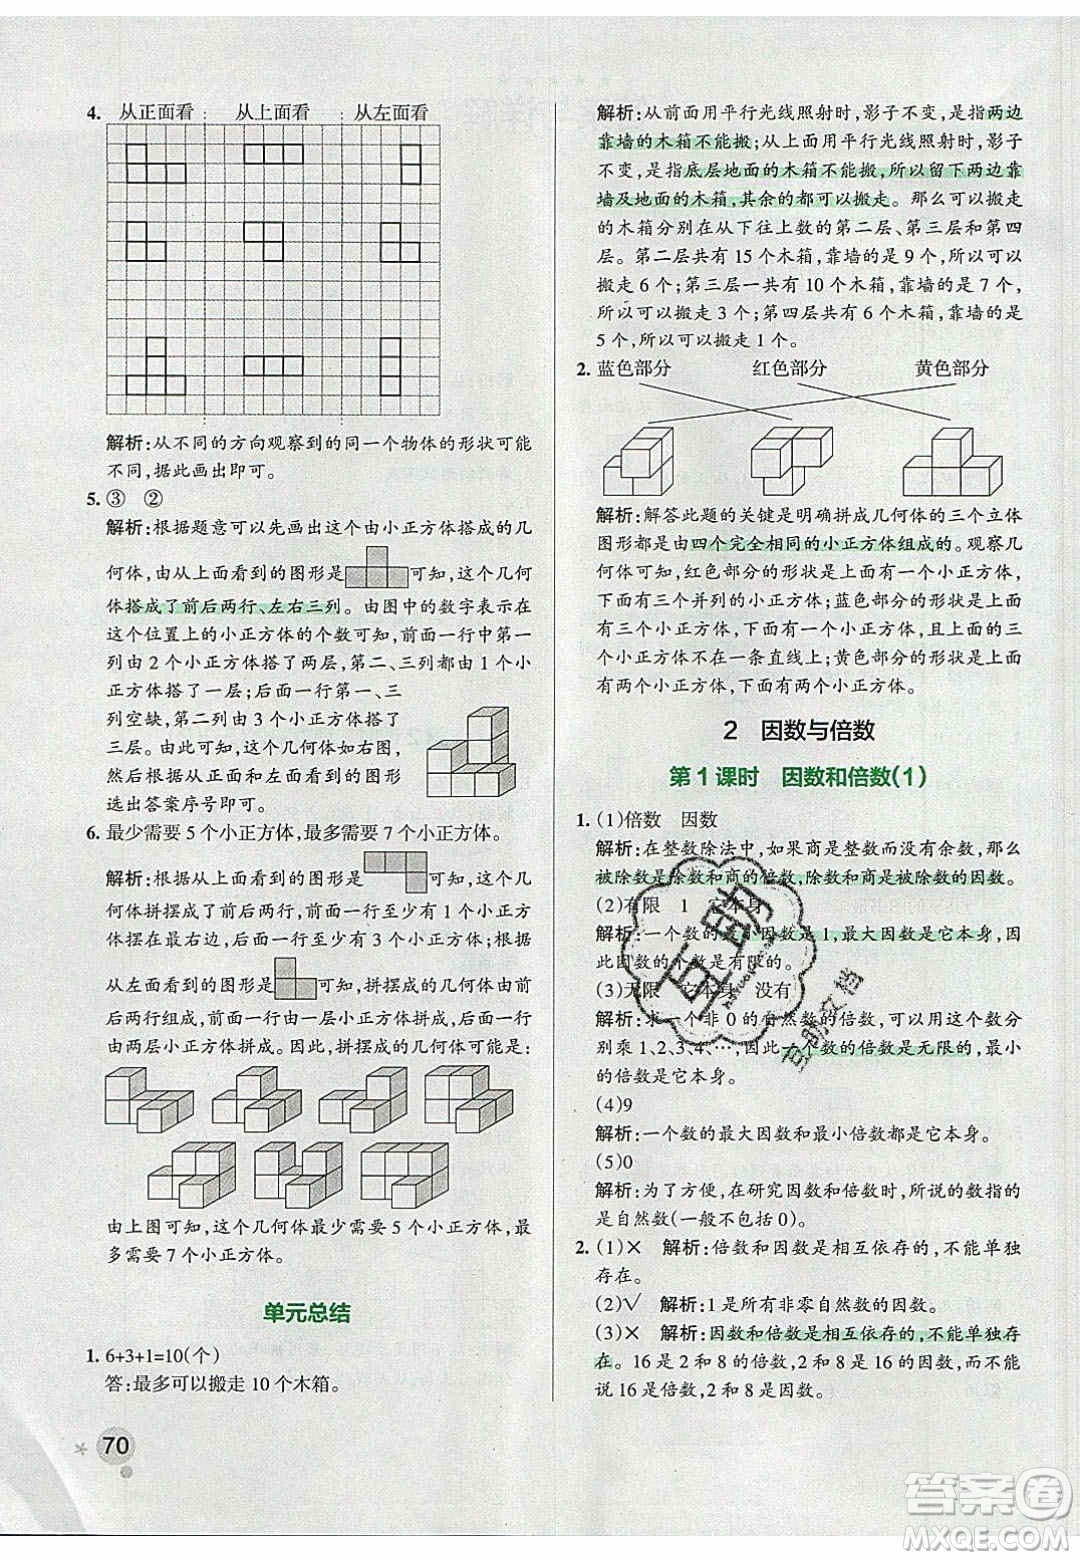 4. 从正面看 从上面看 从左面看
解析:从不同的方向观察到的同一个物体的形状可能
不同,据此画出即可。
5. ③ ②
解析:根据题意可以先画出这个由小正方体搭成的几
何体,由从上面看到的图形是 可知,这个几何
体搭成了前后两行、左右三列。由图中的数字表示在
这个位置上的小正方体的个数可知,前面一行中第一
列由 2 个小正方体搭了两层,第二、三列都由 1 个小
正方体搭了一层;后面一行第一、三
列空缺,第二列由 3 个小正方体搭了
三层。由此可知,这个几何体如右图,
然后从左面看和从前面看到的图形
选出答案序号即可。
6. 最少需要 5 个小正方体,最多需要 7 个小正方体。
解析:根据从上面看到的图形是 可知,这个几
何体拼摆成了前后两行,后面一行至少有 1 个小正方
体摆在最右边,前面一行至少有 3 个小正方体。根据
从左面看到的图形是 可知,拼摆成的几何体由
前后两行组成,后面一行只有一层,前面一行的几何体
由两层小正方体拼成。因此,拼摆成的几何体可能是:
由上图可知,这个几何体最少需要 5 个小正方体,最
多需要 7 个小正方体。
单元总结
1. 6+3+1=10(个)
答:最多可以搬走 10 个木箱。
70
解析:从前面用平行光线照射时,影子不变,是指两边
靠墙的木箱不能搬;从上面用平行光线照射时,影子
不变,是指底层地面的木箱不能搬,所以留下两边靠
墙及地面的木箱,其余的都可以搬走。那么可以搬走
的木箱分别在从下往上数的第二层、第三层和第四
层。第二层共有 15 个木箱,靠墙的是 9 个,所以可以
搬走 6 个;第三层一共有 10 个木箱,靠墙的是 7 个,
所以可以搬走 3 个;第四层共有 6 个木箱,靠墙的是
5 个,所以可以搬走 1 个。
2. 蓝色部分 红色部分 黄色部分
解析:解答此题的关键是明确拼成几何体的三个立体
图形都是由四个完全相同的小正方体组成的。观察几
何体可知,红色部分的形状是上面有一个小正方体,
下面有三个并列的小正方体;蓝色部分的形状是上面
有两个小正方体,下面有两个小正方体,且上面的三
个小正方体不在一条直线上;黄色部分的形状是上面
有两个小正方体,下面有两个小正方体。
2 因数与倍数
第 1 课时 因数和倍数(1)
1. (1)倍数 因数
解析:在整数除法中,如果商是整数而没有余数,那么
被除数是除数和商的倍数,除数和商是被除数的因数。
(2)有限 1 它本身
解析:一个数的最小因数是 1,最大因数是它本身,因
此因数的个数是有限的。
(3)无限 它本身 没有
解析:求一个非 0 的自然数的倍数,可以用这个数分
别乘 1、2、3、4、…,因此一个数的倍数是无限的,其中最
小的倍数是它本身。
(4)9
解析:一个数的最大因数和最小倍数都是它本身。
(5)0
解析:为了方便,在研究因数和倍数时,所说的数指的
是自然数(一般不包括 0)。
2. (1)× 解析:倍数和因数是相互依存的,不能单独
存在。
(2)√ 解析:1 是所有非零自然数的因数。
(3)× 解析:因数和倍数是相互依存的,不能单独存
在。16 是 2 和 8 的倍数,2 和 8 是 16 的因数,不能说
16 是倍数,2 和 8 是因数。
互助
互助文档
答案圈
MXQE.COM